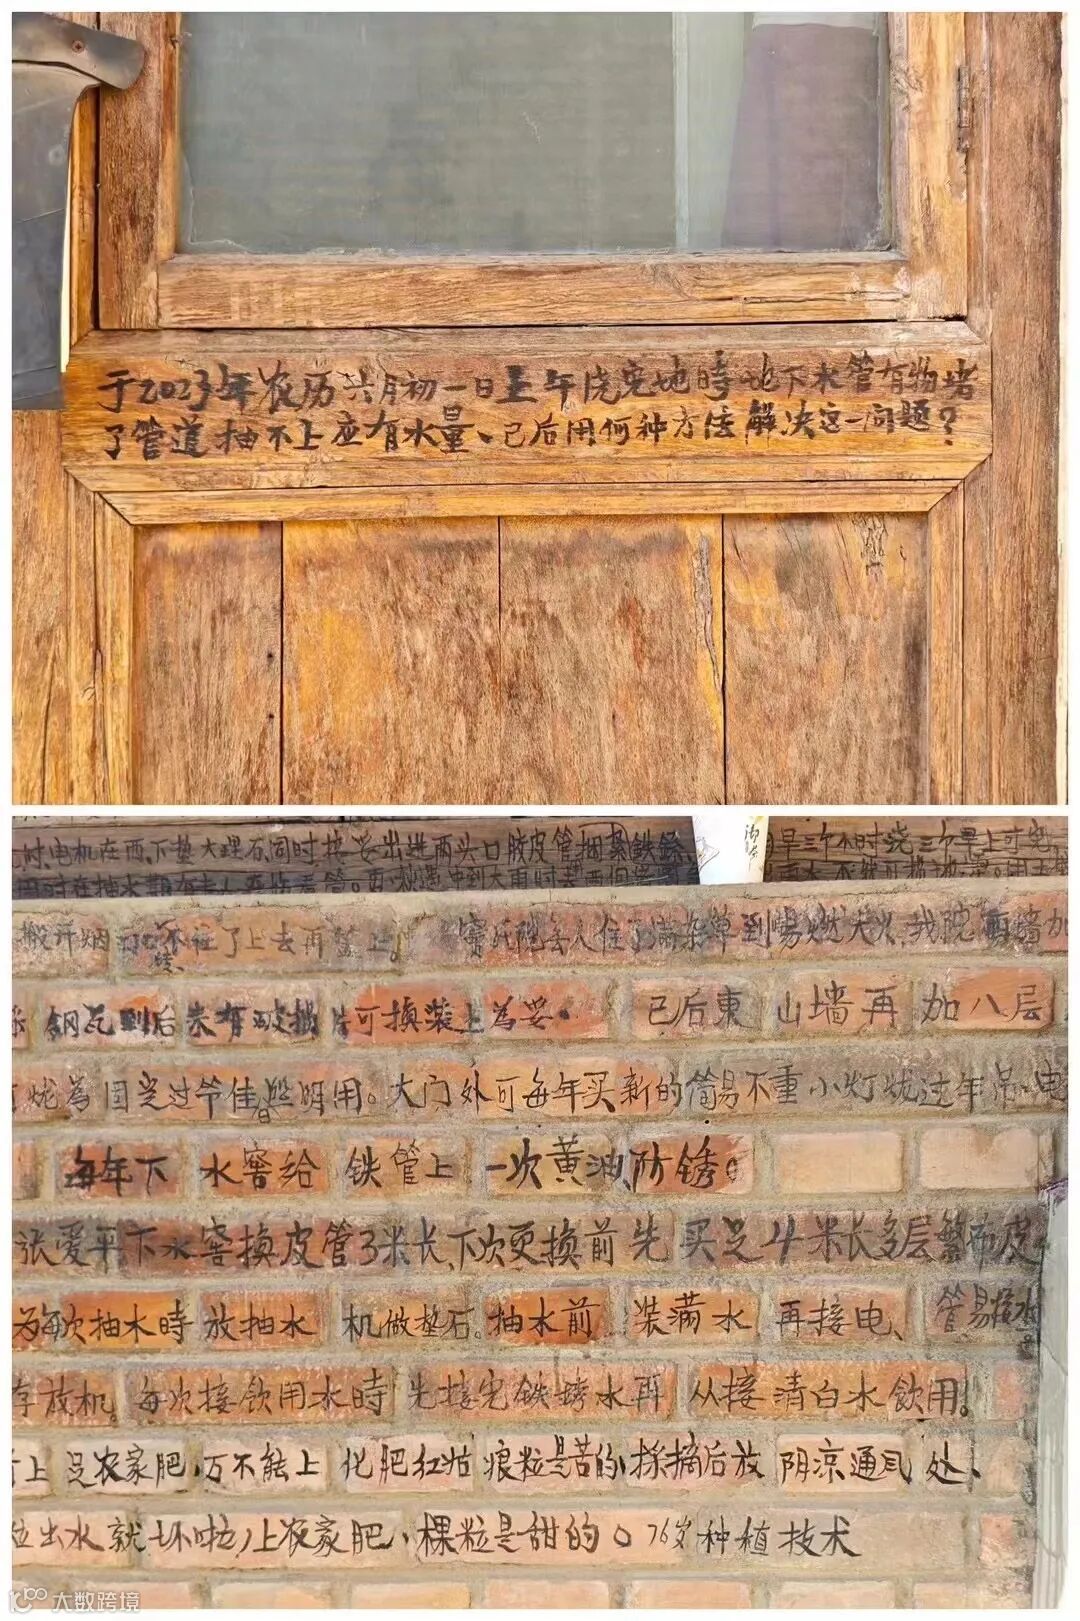 于2023年农历六月初一日上午浇完地時地下水管有物堵
了管道抽不上应有水量、已后用何种方法解决这一问题?
时,电机在西,下垫大理石,同时接妥出进两头口胶皮管捆紧鉄
早三个小时浇三个早上可完
不住了上去再盖上。 人住了满杂草到
钢瓦到后来有 可换装上為妥。 已后東山墙再加八层
烧為国定过节佳日照明用。大门处可每年买新的简易不重小灯 过年吊 电
每年下水窖给铁管上一次黄油防锈。
张爱平下水窖換皮管3米长,下次更換前先买足4米长多层繁布皮
为每次抽木時放抽水机做垫石。抽水前装满水再接电、管易接水
存放机。每次接飲用水時先接完铁锈水再从接清白水飲用。
上足农家肥,万不能上化肥红姑 粒是苦的,採摘后放阴凉通风处、
出水就坏啦,上农家肥、棵粒是甜的。76岁种植技术
大数跨境